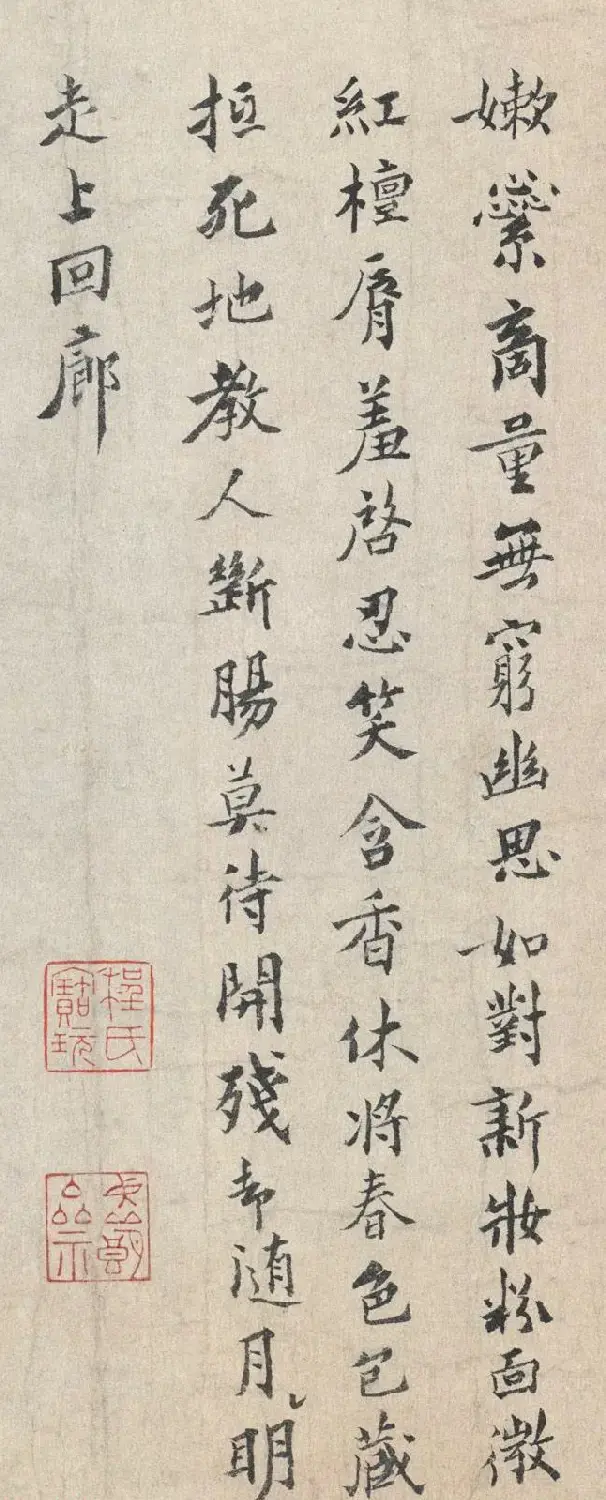 嫩蘂商量無窮幽思如對新妝粉面微
紅檀脣羞啓忍笑含香休將春色包藏
抵死地教人斷腸莫待開殘却随月明
走上回廊
程氏寶玩